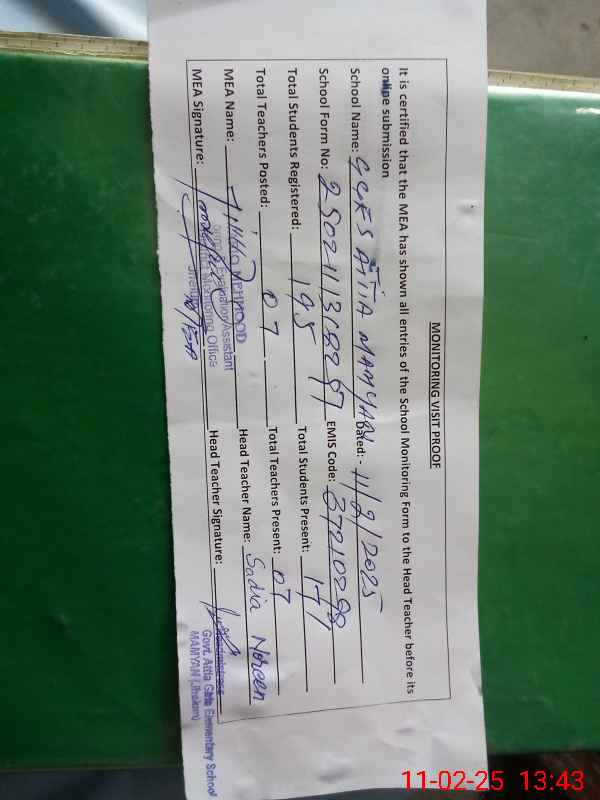 MONITORING VISIT PROOF
It is certified that the MEA has shown all entries of the School Monitoring Form to the Head Teacher before its
online submission
School Name: GGES ATTIA MAMYAN Dated:- 11/2/2025
School Form No: EMIS Code: 37210298
Total Students Registered: 195 Total Students Present: 171
Total Teachers Posted: 07 Total Teachers Present: 07
MEA Name: Head Teacher Name: Sadia Noreen
MEHMOOD
Evaluation Assistant
Monitoring Office
MEA Signature: Head Teacher Signature:
Headmistress
Govt. Attia Girls Elementary School
MAMYAN (Jhelum)
11-02-25 13:43